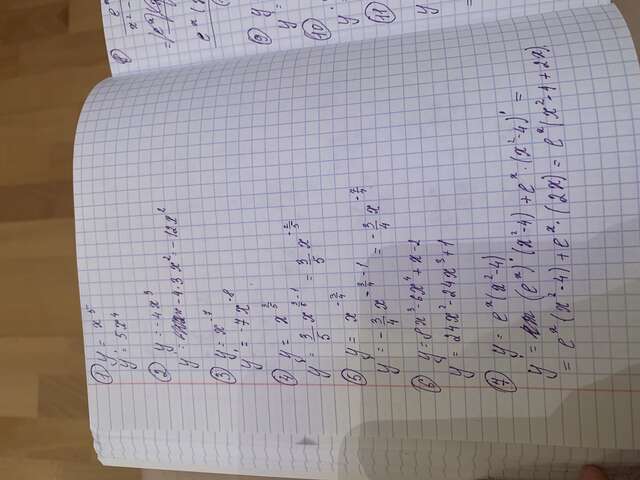 ① y = x⁵
y' = 5x⁴
② y = -4x³
y' = -4·3x² = -12x²
③ y = x⁻⁷
y' = -7x⁻⁸
④ y = x^(3/5)
y' = 3/5 x^(3/5 - 1) = 3/5 x^(-2/5)
⑤ y = x^(-3/4)
y' = -3/4 x^(-3/4 - 1) = -3/4 x^(-7/4)
⑥ y = 8x³ - 6x⁴ + x - 2
y = 24x² - 24x³ + 1
⑦ y = eˣ(x² - 4)
y' = (eˣ)'(x² - 4) + eˣ·(x² - 4)' =
= eˣ(x² - 4) + eˣ·(2x) = eˣ(x² - 4 + 2x)
⑧
x² -
⑨ y
y' =
⑩
y'
⑪
y
=